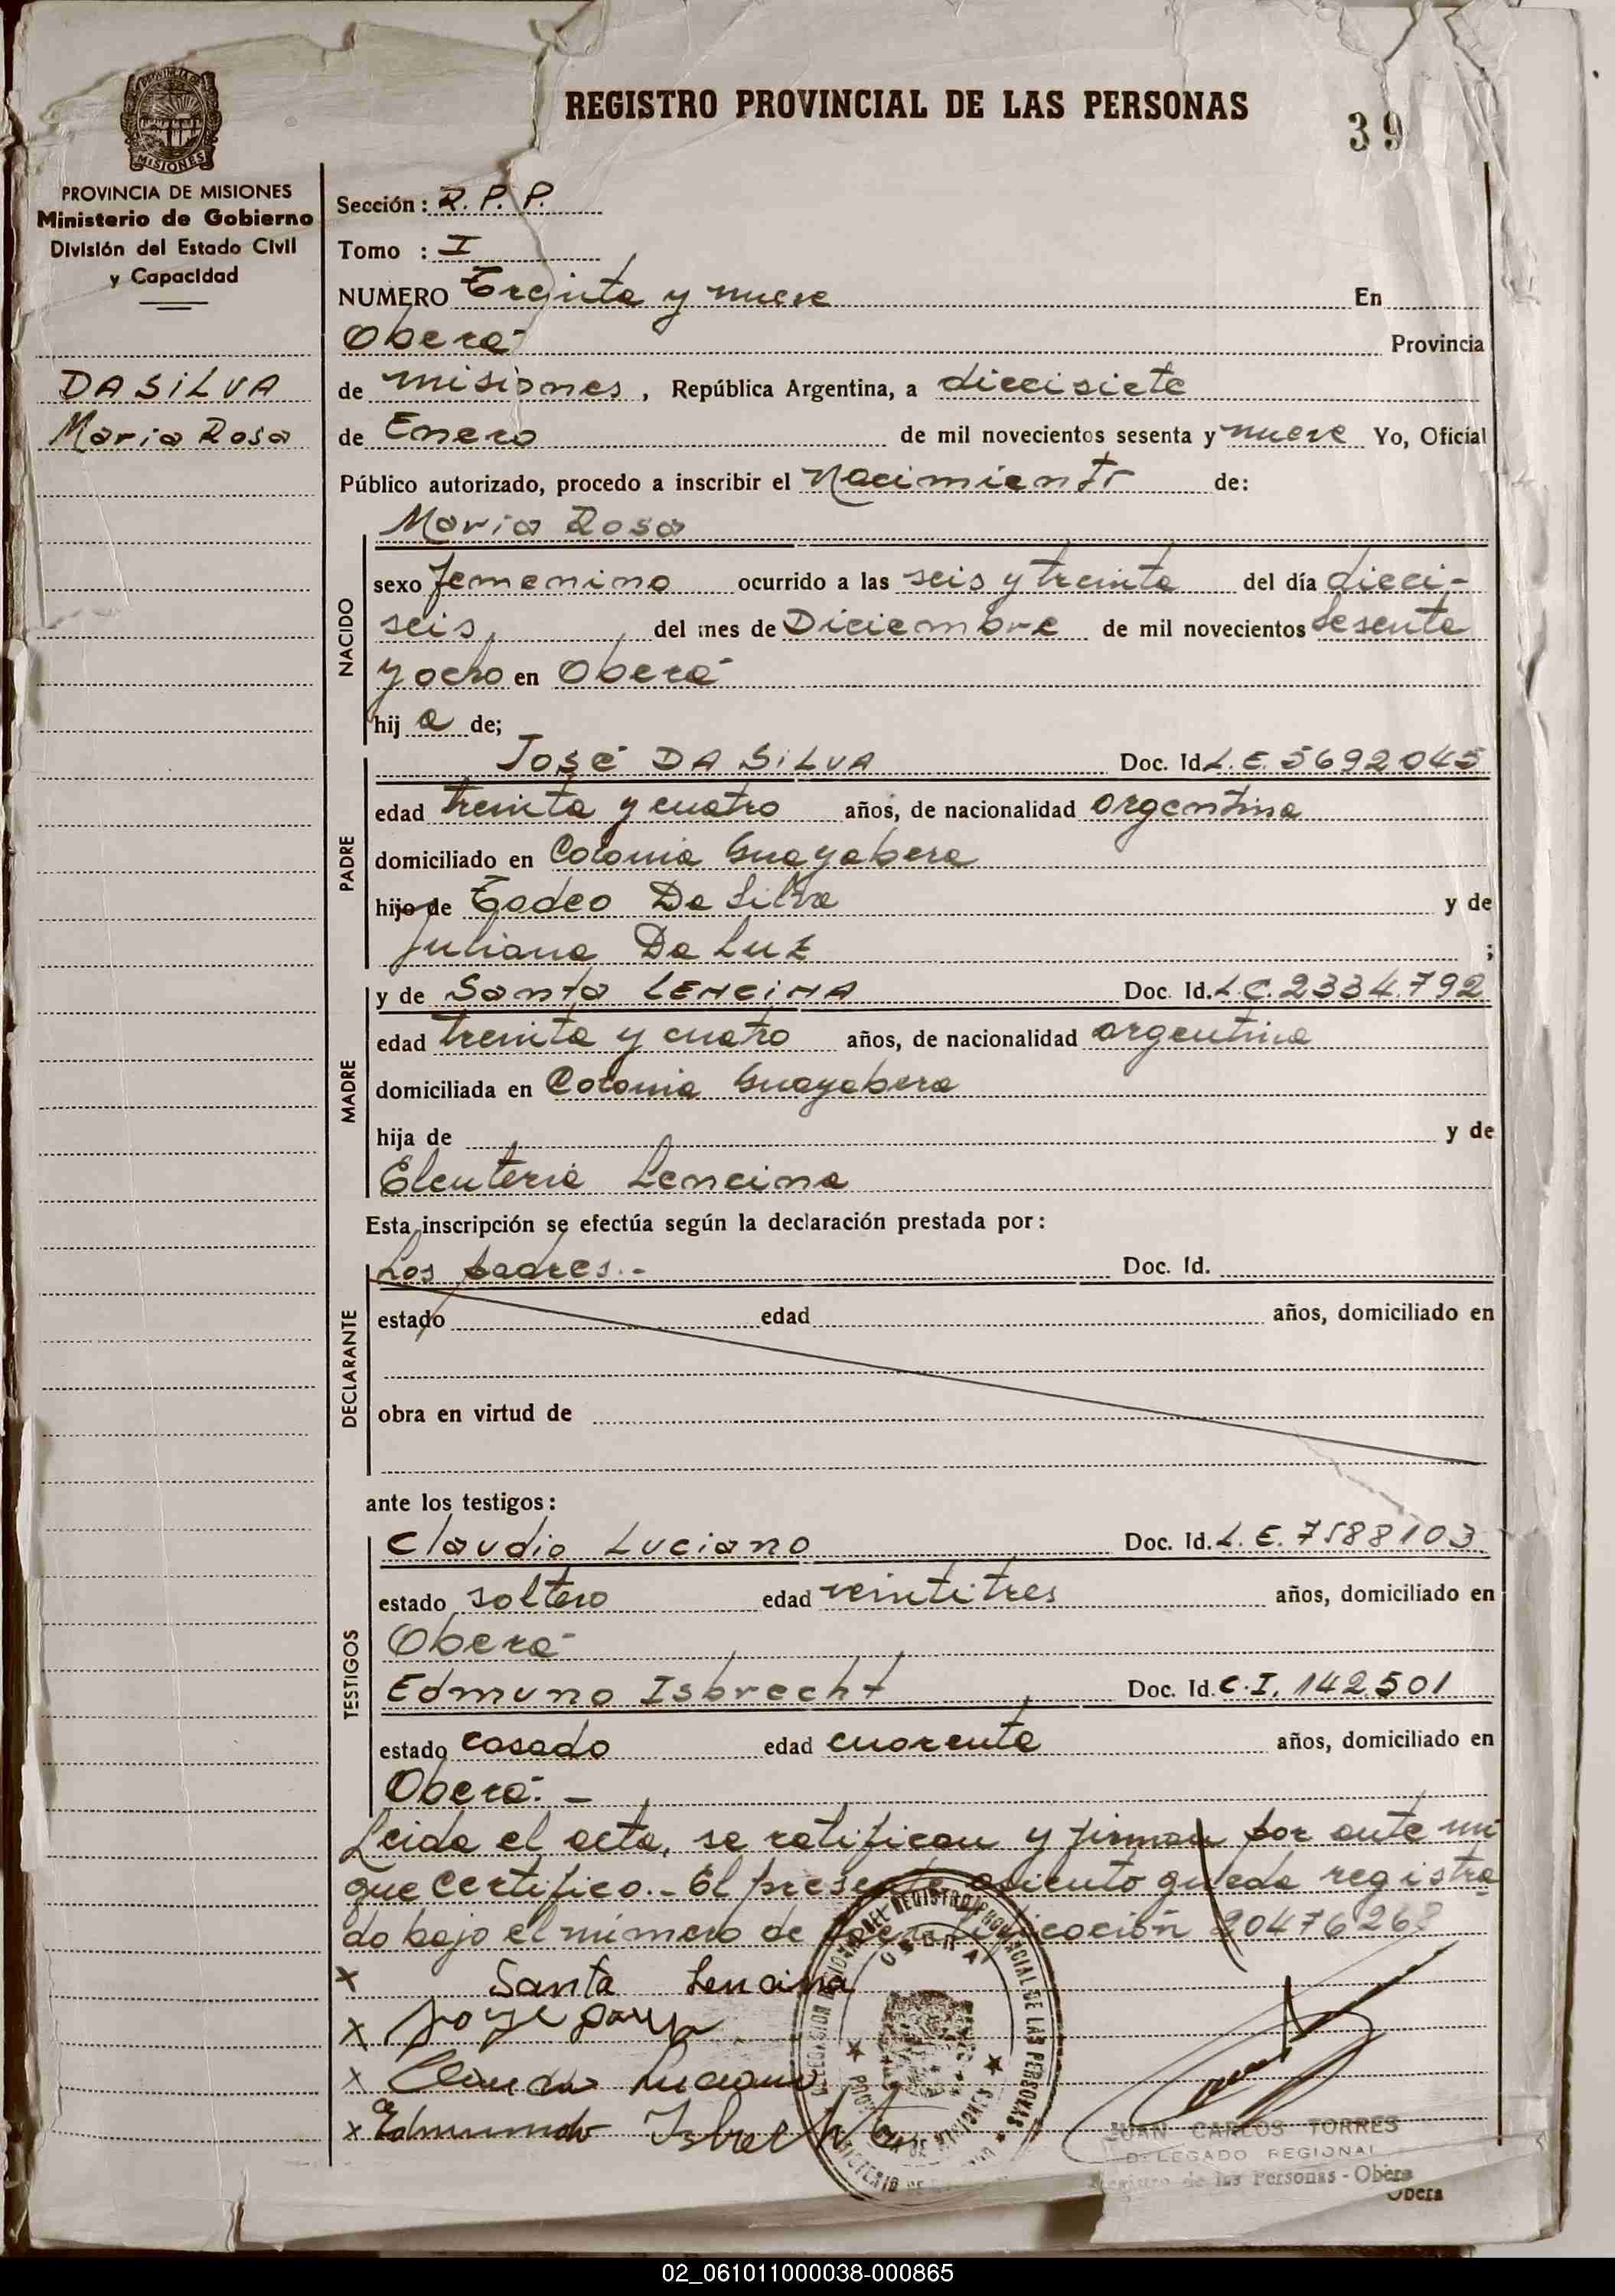 REGISTRO PROVINCIAL DE LAS PERSONAS
39
PROVINCIA DE MISIONES
MISIONES
PROVINCIA DE MISIONES
Ministerio de Gobierno
División del Estado Civil
y Capacidad
DA SILVA
Maria Rosa
Sección: R. P. P.
Tomo : I
NUMERO Treinta y nueve En
Oberá
Provincia
de misiones, República Argentina, a diecisiete
de Enero de mil novecientos sesenta y nueve Yo, Oficial
Público autorizado, procedo a inscribir el Nacimiento de:
NACIDO
Maria Rosa
sexo femenino ocurrido a las seis y treinta del día dieci-
seis, del mes de Diciembre de mil novecientos sesenta
y ocho en Oberá
hij a de;
PADRE
José DA SILVA Doc. Id. L.E. 5692045
edad treinta y cuatro años, de nacionalidad argentina
domiciliado en Colonia Guayabera
hijo de Tadeo Da Silva y de
Juliana Da Luz ;
MADRE
y de Santa LENCINA Doc. Id. L.C. 2334.792
edad treinta y cuatro años, de nacionalidad argentina
domiciliada en Colonia Guayabera
hija de y de
Eleuteria Lencina
Esta inscripción se efectúa según la declaración prestada por:
DECLARANTE
Los padres.- Doc. Id.
estado edad años, domiciliado en
obra en virtud de
ante los testigos:
TESTIGOS
Claudio Luciano Doc. Id. L.E. 7588103
estado soltero edad veintitres años, domiciliado en
Oberá
Edmuno Isbrecht Doc. Id. C.I. 142.501
estado casado edad cuarenta años, domiciliado en
Oberá. -
Leida el acta, se ratifican y firman por ante mi
que certifico.- El presente asiento queda registra
do bajo el número de identificación 20476268
x Santa Lencina
x
x Luciano
x Edmundo Isbrecht
OBERA
JUAN CARLOS TORRES
DELEGADO REGIONAL
Registro de las Personas - Obera
Obera
02_061011000038-000865